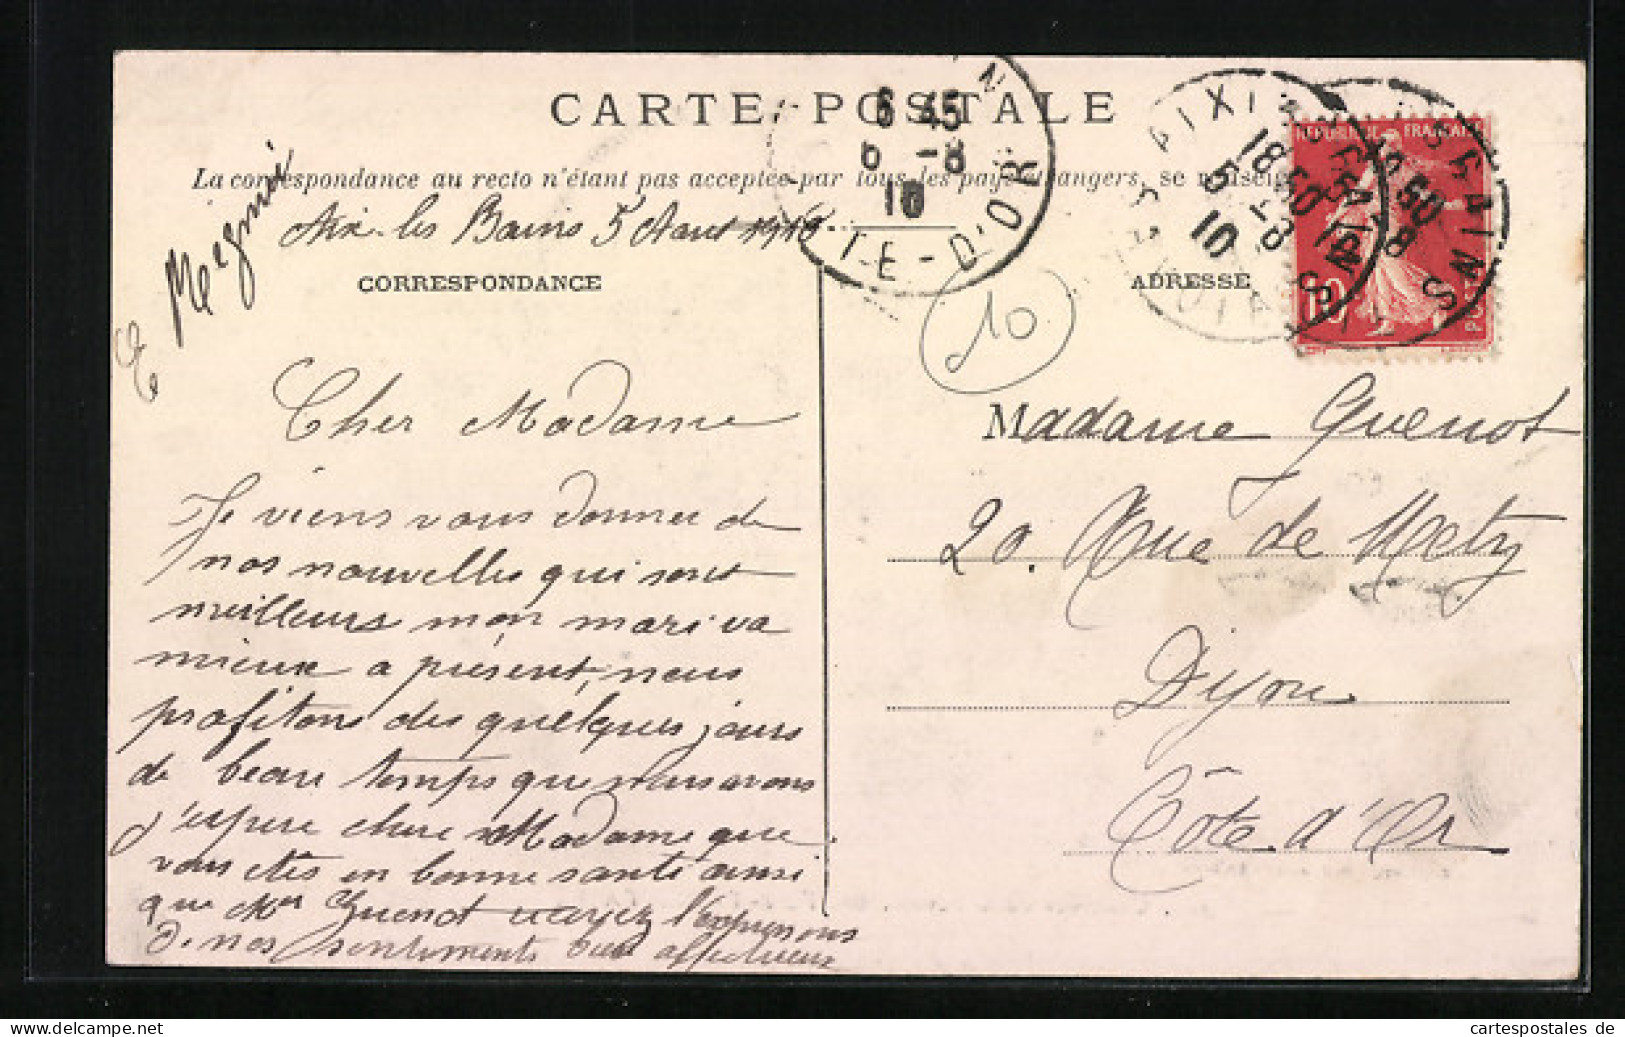 CARTE POSTALE
La correspondance au recto n'étant pas acceptée par tous les pays étrangers, se renseigner
Aix-les Bains 5 Aout 1910
CORRESPONDANCE
E Mégnié
Cher Madame
Je viens vous donner de
nos nouvelles qui sont
meilleurs mon mari va
mieux a présent, nous
profitons des quelques jours
de beau temps que nous avons
j'espere chere Madame que
vous etes en bonne santé ainsi
que Mr Guenot recevez l'expression
de nos sentiments bien affectueux
6 45
6 -8
10
TE-D'OR
10
ADRESSE
AIX-LES-BAINS
18 50
5 -8
10
SAVOIE
REPUBLIQUE FRANÇAISE
10
POSTES
Madame Guenot
20. Rue de Metz
Dijon
Côte d'Or
cartespostales de